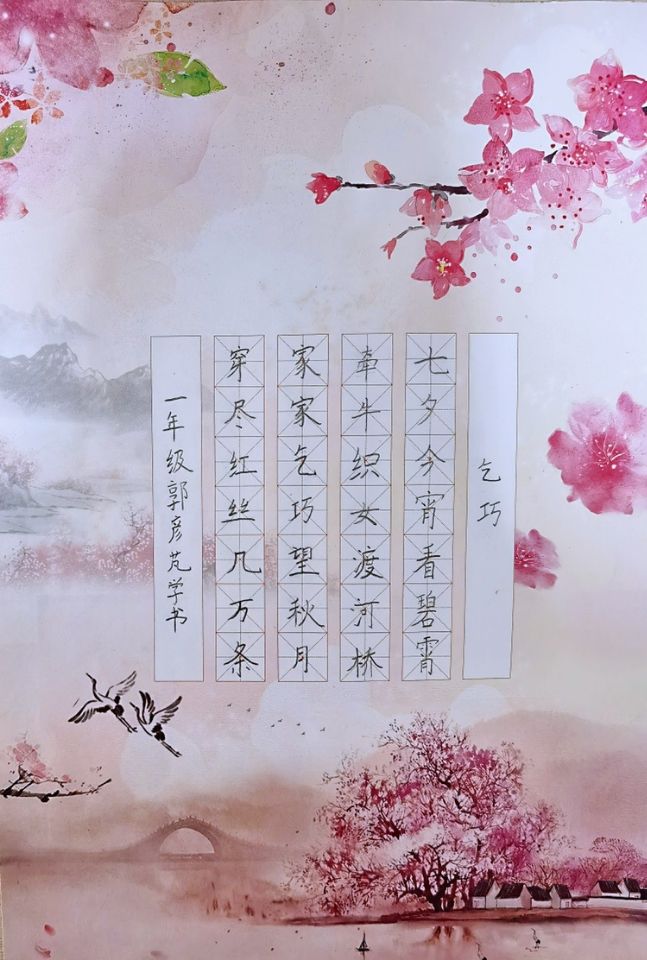 乞巧
七夕今宵看碧霄
牵牛织女渡河桥
家家乞巧望秋月
穿尽红丝几万条
一年级郭彦芃学书